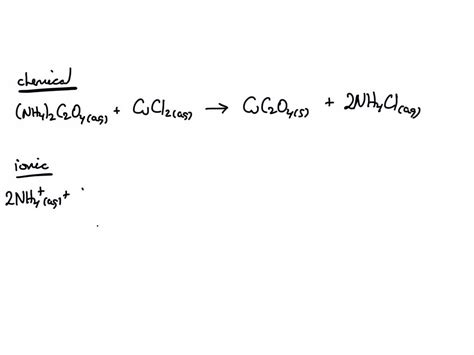 chemical
(NH₄)₂C₂O₄(aq) + CuCl₂(aq) → CuC₂O₄(s) + 2NH₄Cl(aq)
ionic
2NH₄⁺(aq) +